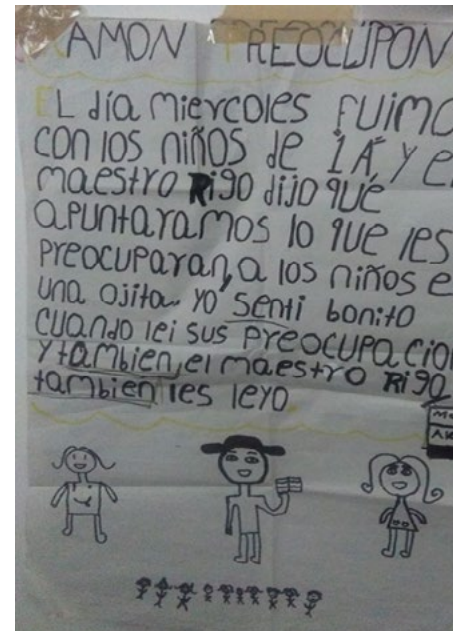 RAMON PREOCUPON
EL día miercoles fuimo
con los niños de 1A y e
maestro Rigo dijo que
apuntaramos lo que les
preocuparan, a los niños e
una ojita. Yo senti bonito
cuando lei sus preocupacio
y tambien, el maestro Rigo
tambien les leyo